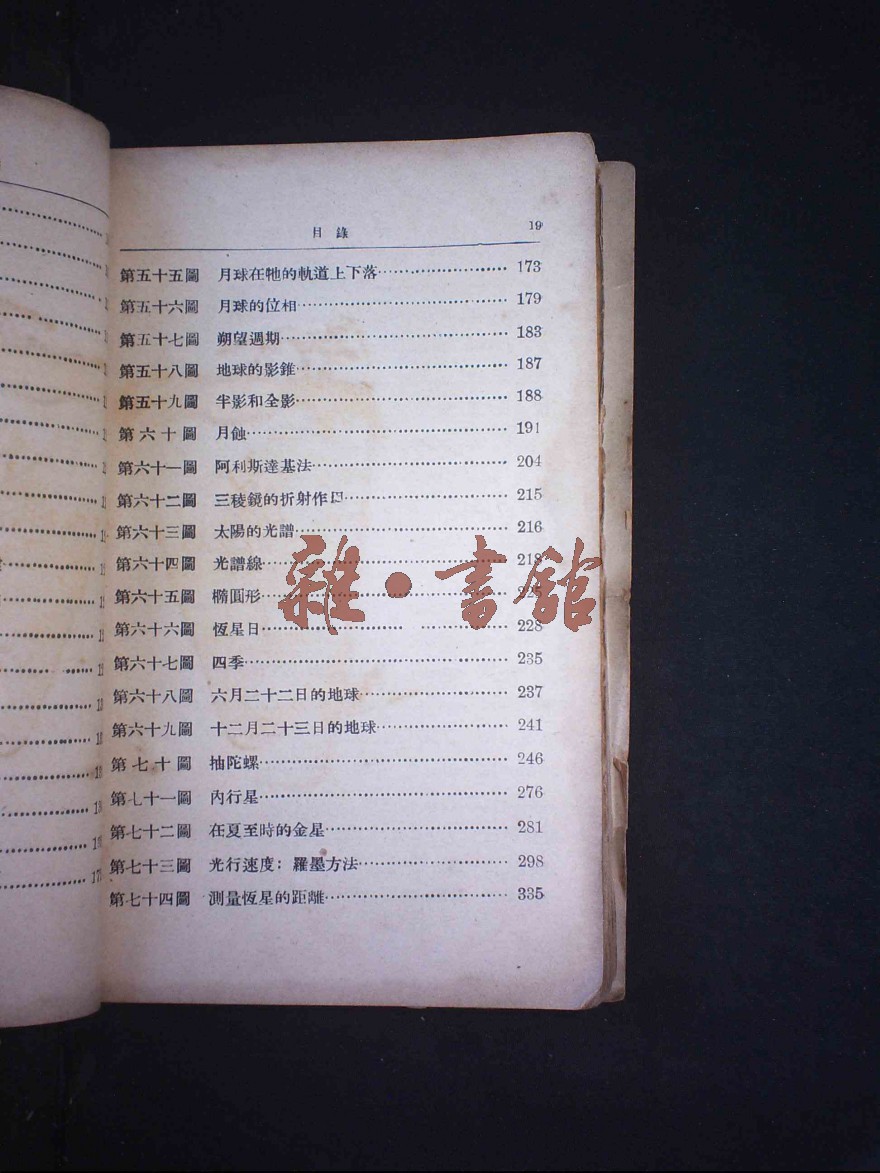 目錄 19
第五十五圖 月球在牠的軌道上下落 173
第五十六圖 月球的位相 179
第五十七圖 朔望週期 183
第五十八圖 地球的影錐 187
第五十九圖 半影和全影 188
第六十圖 月蝕 191
第六十一圖 阿利斯達基法 204
第六十二圖 三稜鏡的折射作用 215
第六十三圖 太陽的光譜 216
第六十四圖 光譜線 218
第六十五圖 橢圓形 225
第六十六圖 恆星日 228
第六十七圖 四季 235
第六十八圖 六月二十二日的地球 237
第六十九圖 十二月二十三日的地球 241
第七十圖 抽陀螺 246
第七十一圖 內行星 276
第七十二圖 在夏至時的金星 281
第七十三圖 光行速度：羅墨方法 298
第七十四圖 測量恆星的距離 335
雜·書館